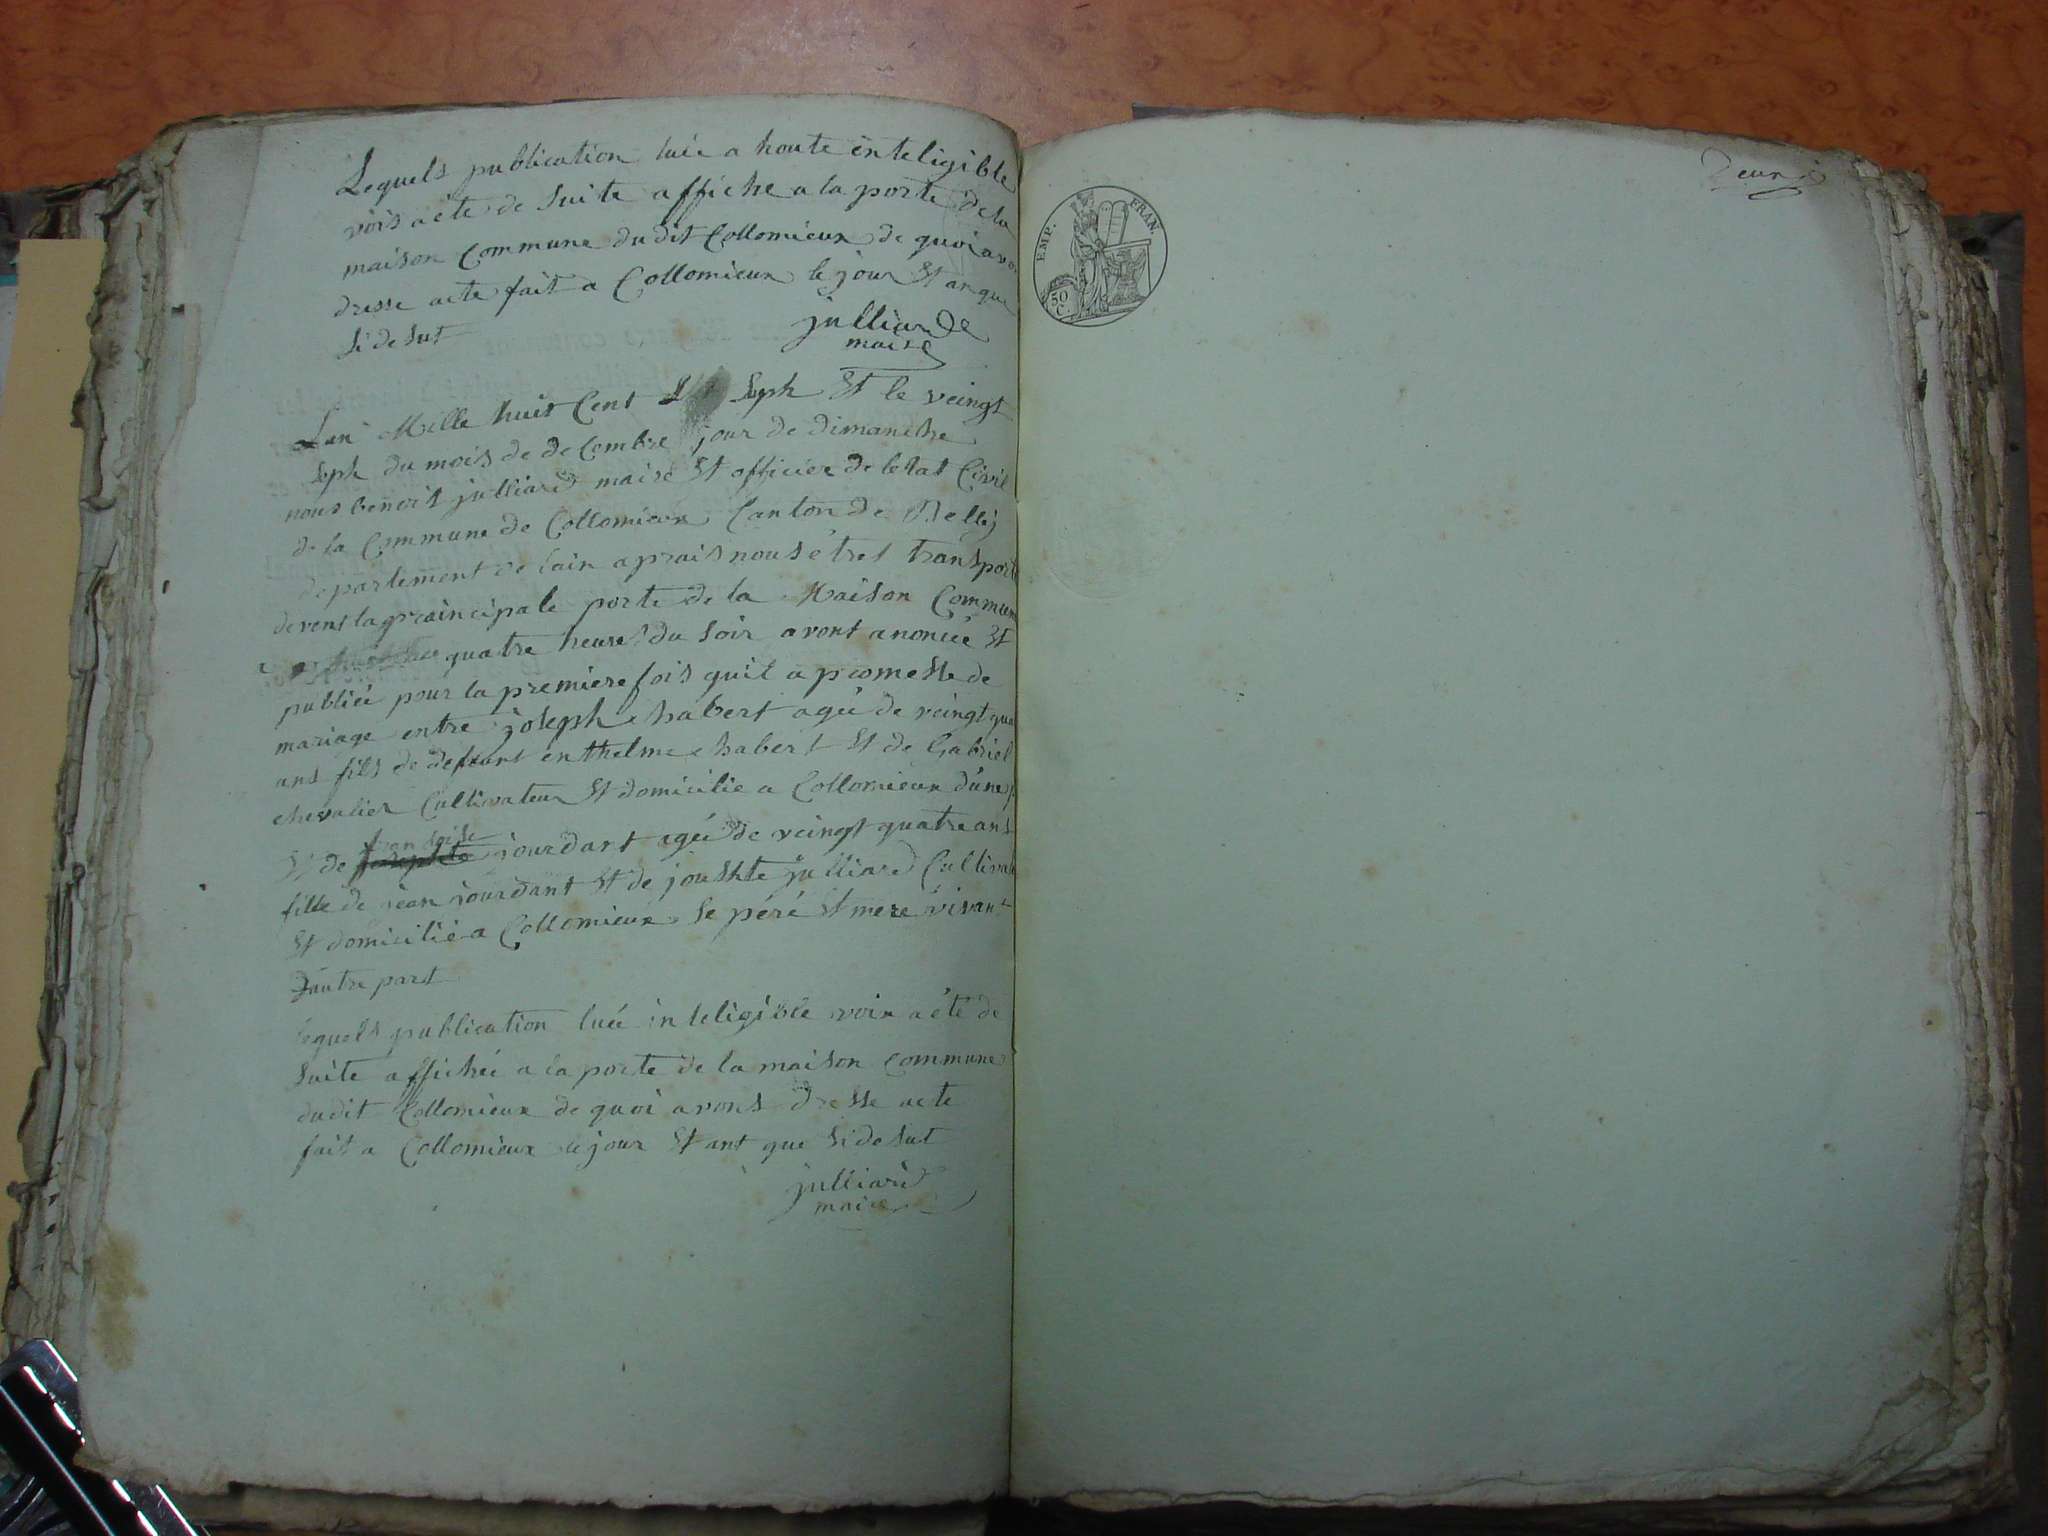 Lequels publication luée a houte inteligible
vois a éte de Suite affiche a la porte de la
maison Commune du dit Collomieux de quoi avon
dresse acte fait a Collomieux le jour Et an que
Si de Sut
julliarde
maire
Lan Mille huit Cent Seph Et le veingt
Seph du mois de deCembre jour de dimanche
nous benoit julliard maire Et officier de letat Civil
de la Commune de Collomieux Canton de Belley
departement de lain aprais nous étres transport
devent la praincipale porte de la Maison Commune
quatre heure du Soir avont anoncée Et
publiée pour la premiere fois quil a promesse de
mariage entre joseph habert agée de veingt qua
ans fils de defeunt enthelme habert Et de Gabriel
chevalier Cultivateur Et domicilie a Collomieux d'une p
Et de francoise jourdant agée de veingt quatre ans
fille de jean jourdant Et de joushte julliard Cultivat
Et domicilié a Collomieux Le péré Et mere vivant
D'autre part
lequels publication luée inteligible voix a éte de
Suite affichée a la porte de la maison Commune
dudit Collomieux de quoi avons dresse acte
fait a Collomieux le jour Et ant que Si de Sut
julliard
maire
EMP. FRAN.
50
C.